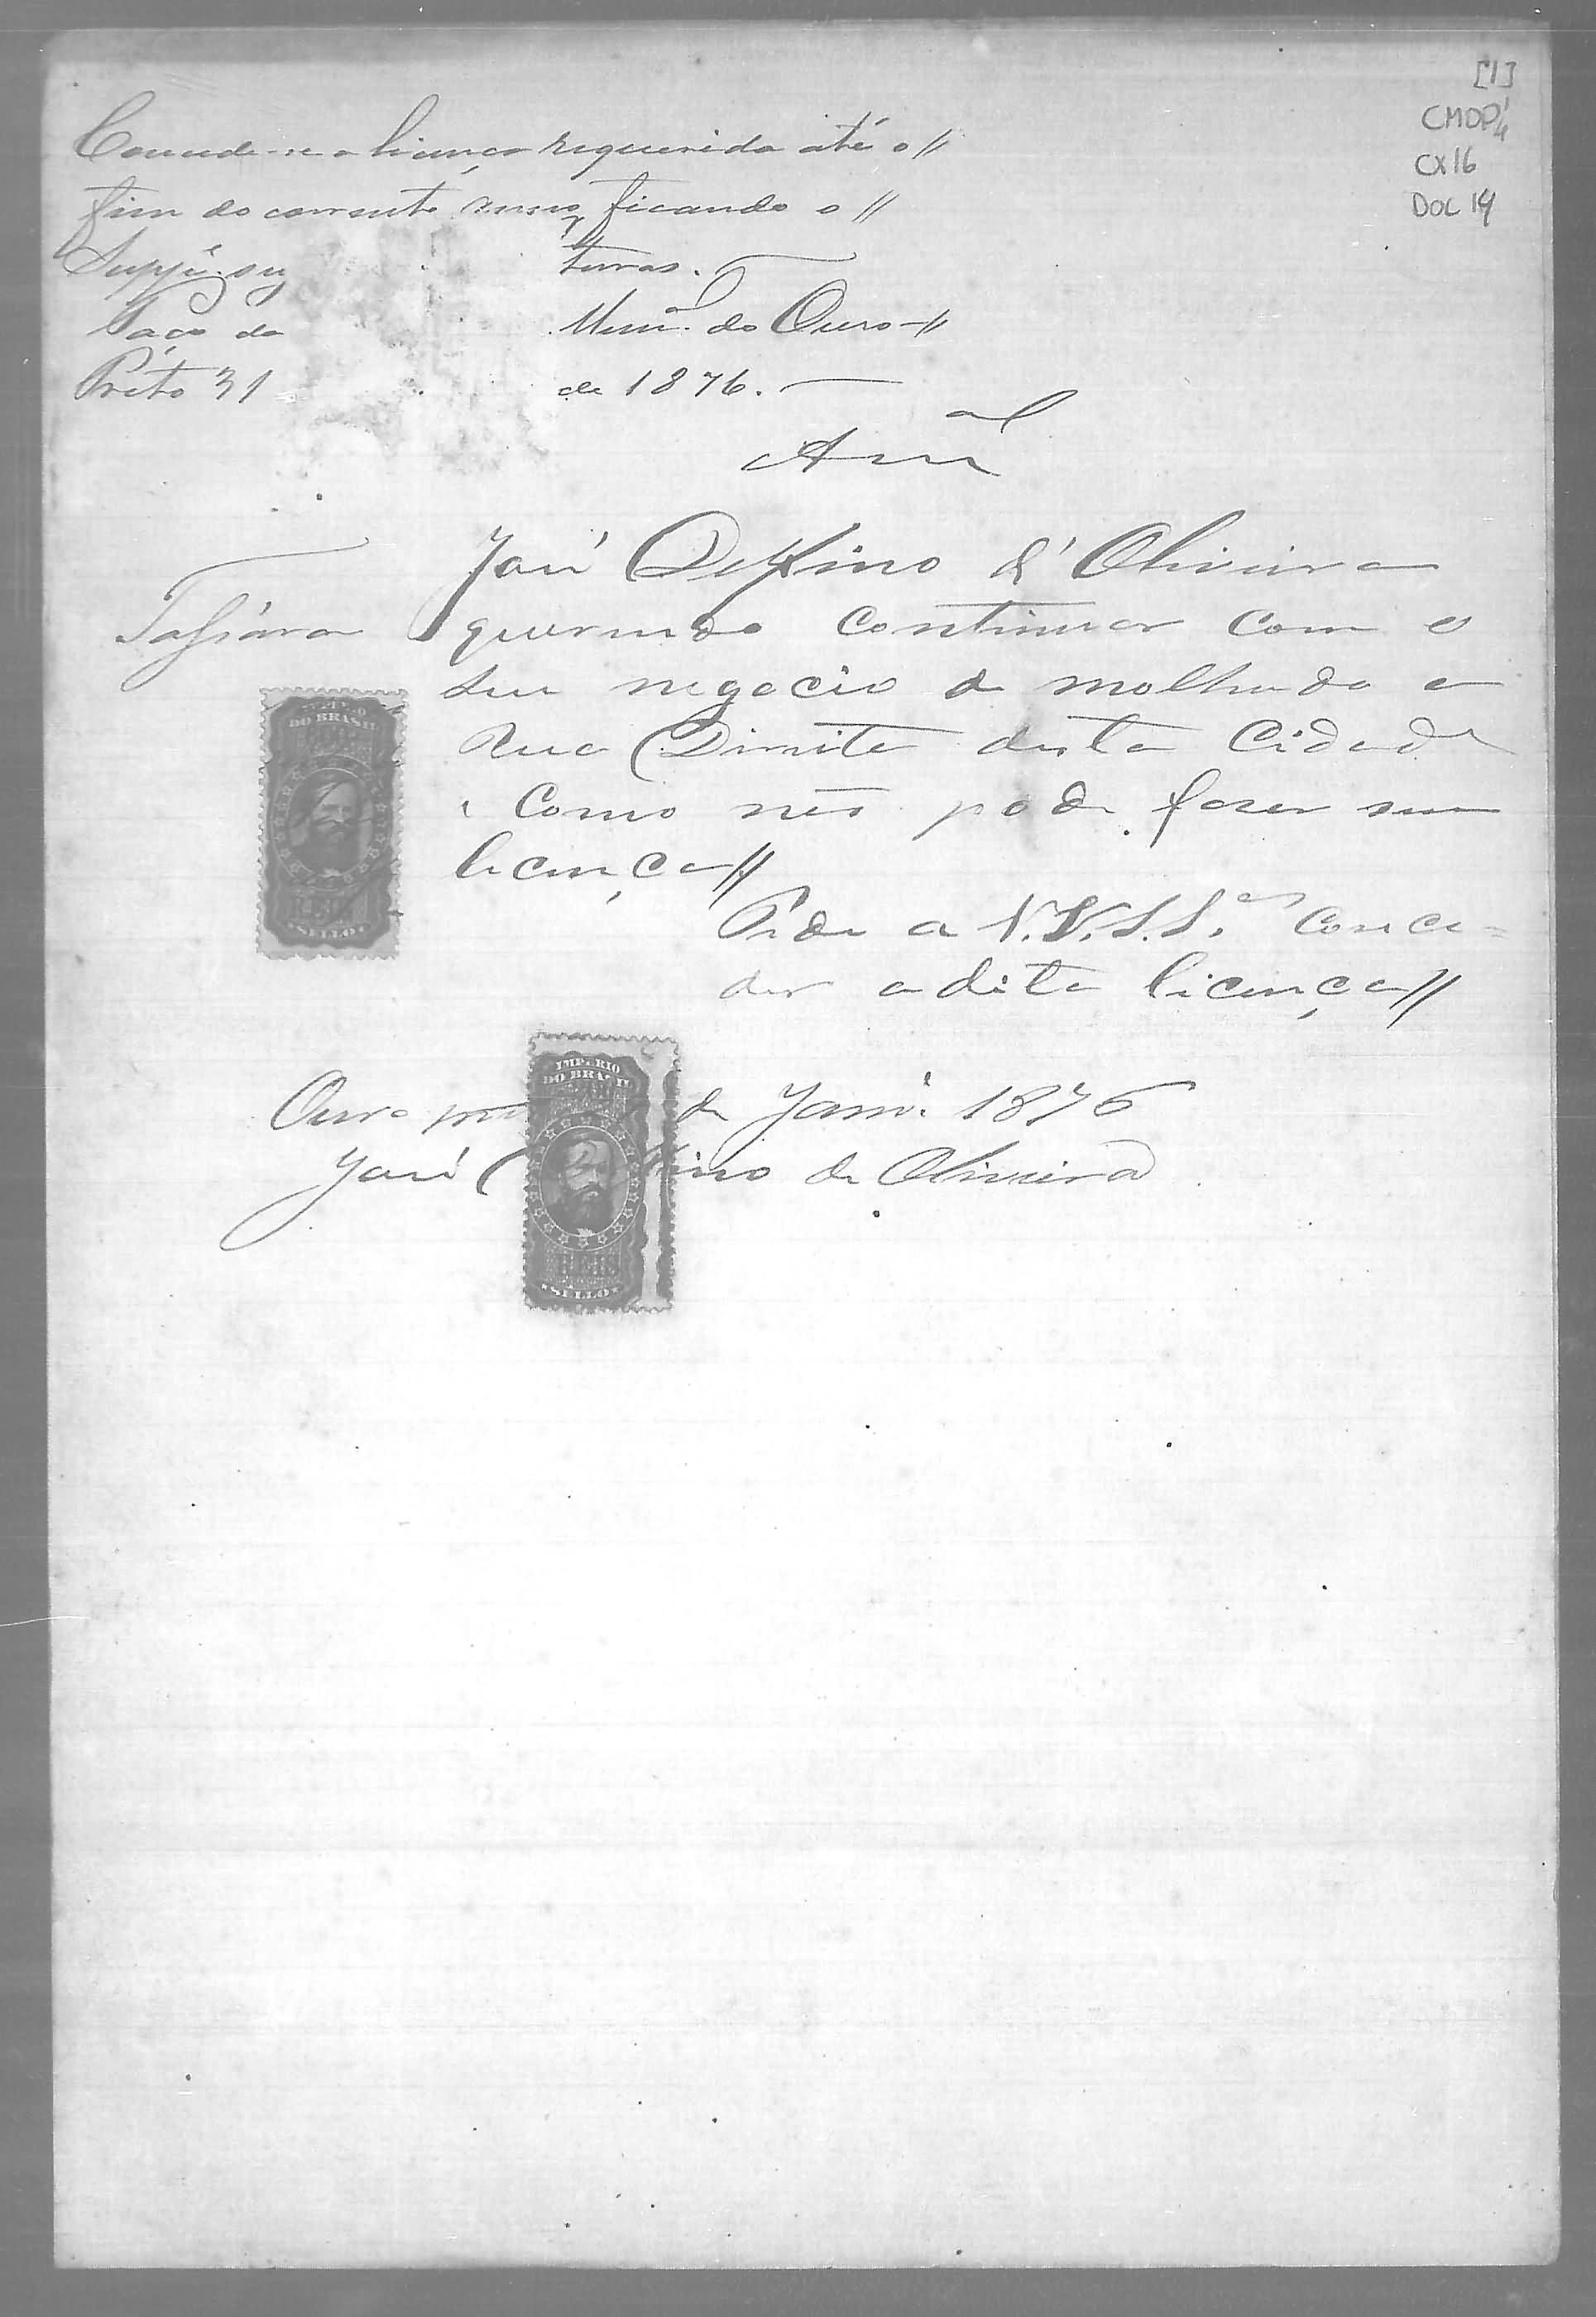 [1]
CMOP
CX16
DOC 14
Concede-se a licença requerida até o //
fim do corrente anno, ficando o //
Supp.e suj turas.
Paço da Mun.al do Ouro-//
Preto 31 de 1876.
José Delfino d'Oliveira
querendo continuar com o
seu negocio de molhado a
Rua Direita desta Cidade
e Como não pode faser sem
licença//
Pede a V.V.S.S.as Conce=
der a dita licença//
IMPERIO
DO BRASIL
SELLO
Ouro pre de Janr.o 1876
José fino de Oliveira
DO BRASIL
SELLO